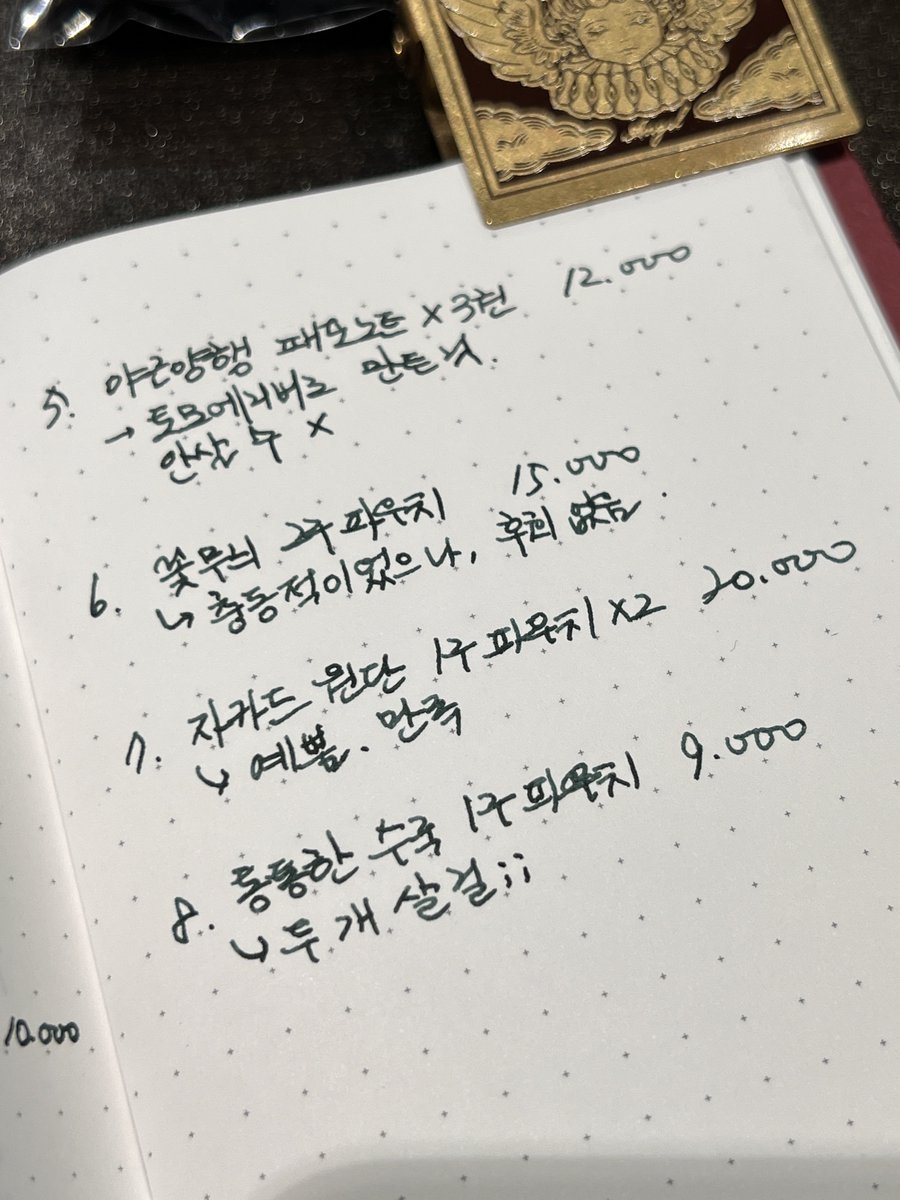 5. 야근양행 떼모노트 x 3권 12.000
→ 토모에리버로 만든 너.
안살 수 x
6. 꽃무늬 2구 파우치 15.000
↳ 충동적이었으나, 후회 없음.
7. 자카드 원단 1구 파우치 x2 20.000
↳ 예쁨. 만족
8. 통통한 수국 1구 파우치 9.000
↳ 두 개 살걸;;
10.000